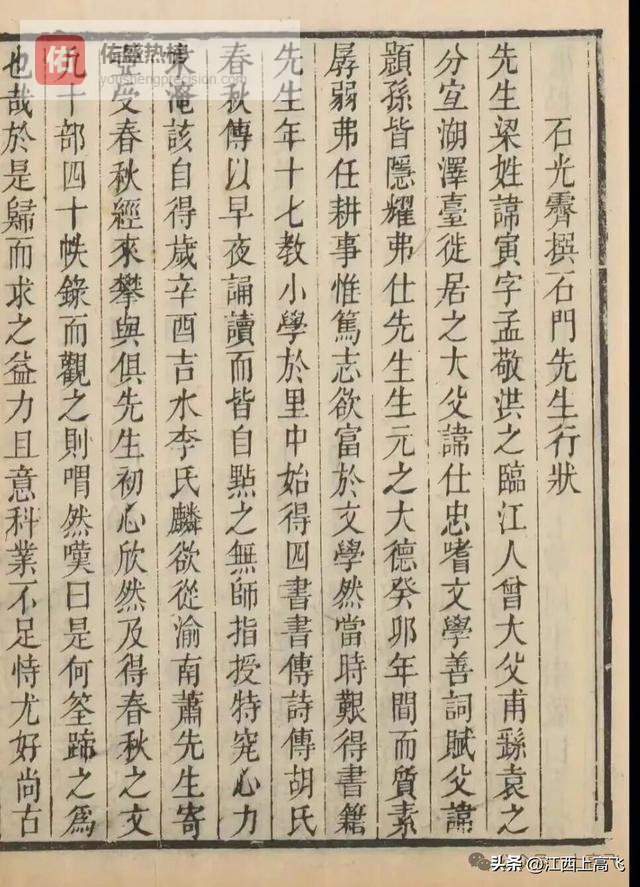 石光霽撰石門先生行狀
先生梁姓諱寅字孟敬洪之臨江人曾大父甫繇袁之
分宜湖澤臺徙居之大父諱仕忠嗜文學善詞賦父諱
顥孫皆隱耀弗仕先生生元之大德癸卯年間而質素
孱弱弗任耕事惟篤志欲富於文學然當時艱得書籍
先生年十七教小學於里中始得四書書傳詩傳胡氏
春秋傳以早夜誦讀而皆自點之無師指授特究心力
淹該自得歲辛酉吉水李氏麟欲從渝南蕭先生寄
受春秋經來攀與俱先生初心欣然及得春秋之文
十部四十帙錄而觀之則喟然嘆曰是何筌蹄之為
也哉於是歸而求之益力且意科業不足恃尤好尚古
佑
佑盛热榜
youshengprecision.com
头条 @江西上高飞